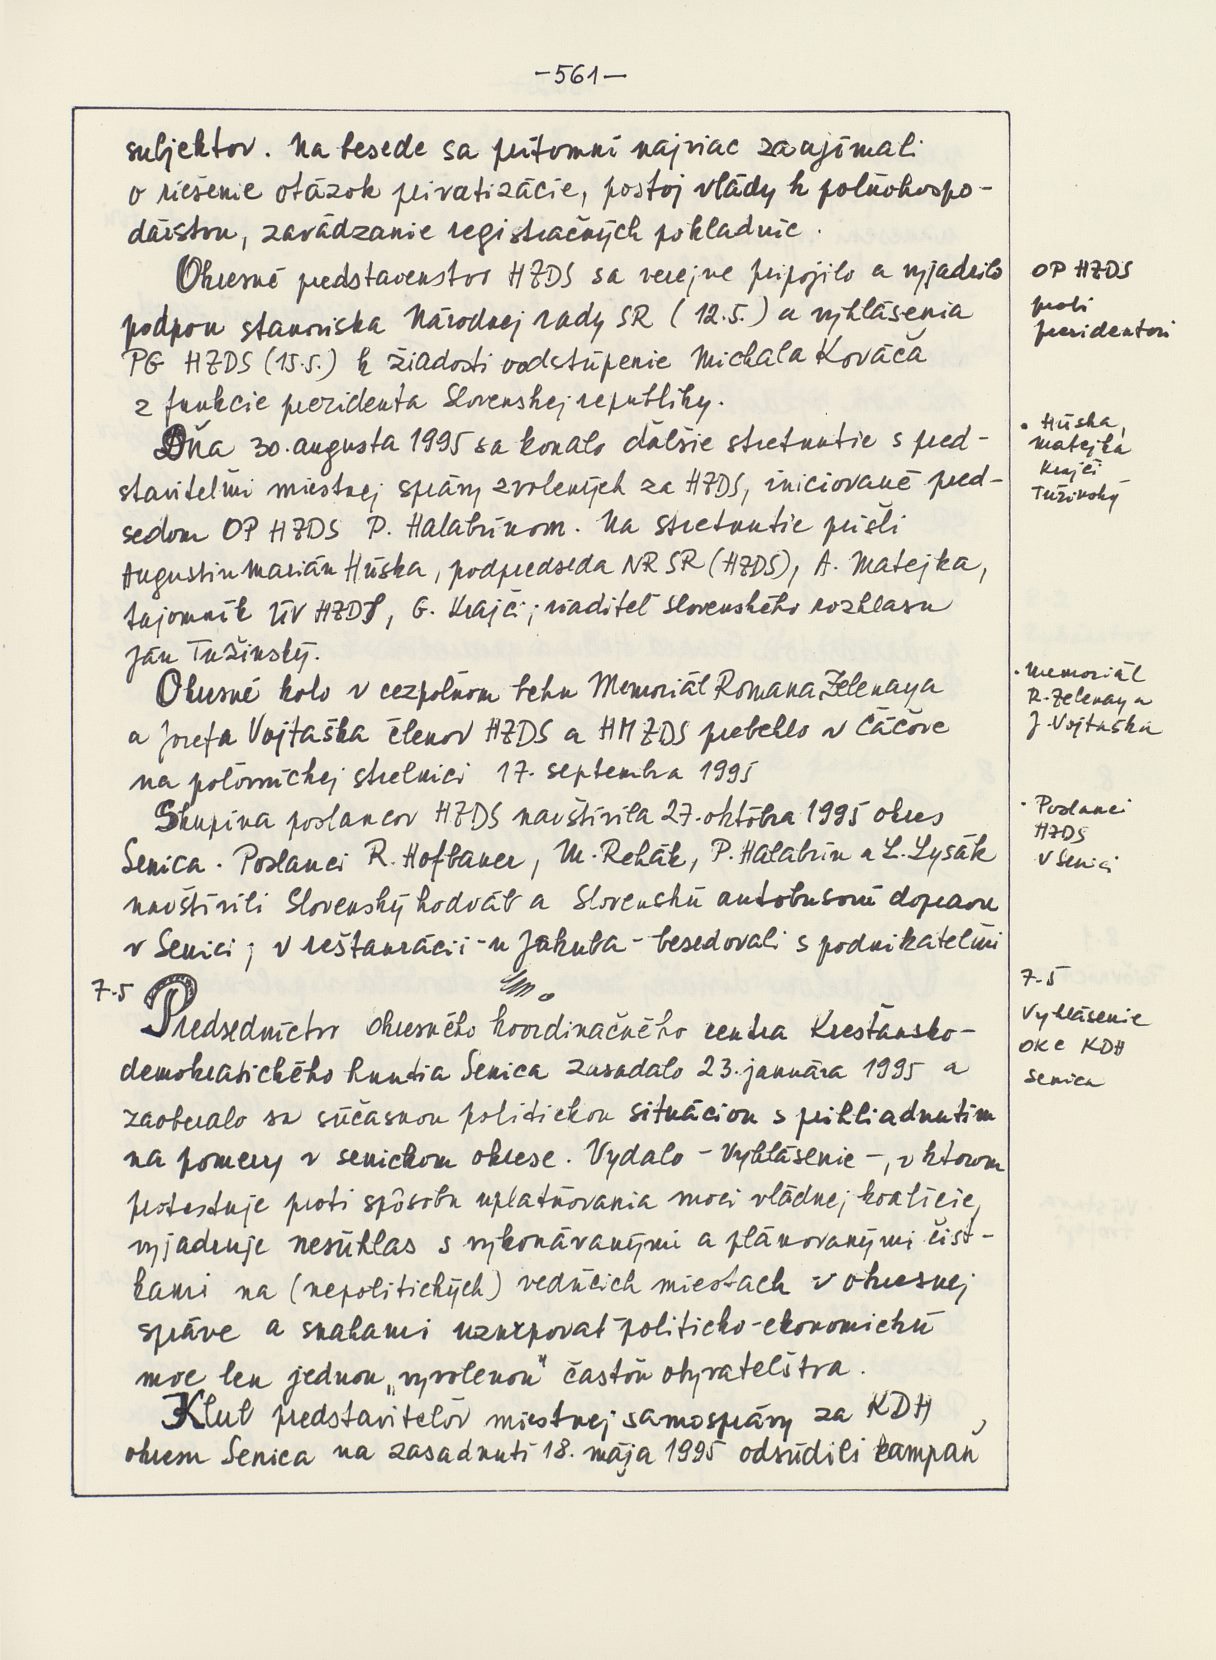 -561-
subjektov. Na besede sa prítomní najviac zaujímali
o riešenie otázok privatizácie, postoj vlády k poľnohospo-
dárstvu, zavádzanie registračných pokladníc.
Okresné predstavenstvo HZDS sa verejne pripojilo a vyjadrilo
podporu stanoviska Národnej rady SR (12.5.) a vyhlásenia
PG HZDS (15.5.) k žiadosti o odstúpenie Michala Kováča
z funkcie prezidenta Slovenskej republiky.
OP HZDS
proti
prezidentovi
Dňa 30. augusta 1995 sa konalo ďalšie stretnutie s pred-
staviteľmi miestnej správy zvolených za HZDS, iniciované pred-
sedom OP HZDS P. Halabrínom. Na stretnutie prišli
Augustin Marián Húska, podpredseda NR SR (HZDS), A. Matejka,
tajomník ÚV HZDS, G. Krajči; riaditeľ Slovenského rozhlasu
Ján Tužinský.
• Húska,
Matejka
Krajči
Tužinský
Okresné kolo v cezpoľnom behu Memoriál Romana Zelenaya
a Jozefa Vojtaška členov HZDS a HM ZDS prebehlo v Čáčove
na poľovníckej strelnici 17. septembra 1995
• Memoriál
R. Zelenaya
J. Vojtaška
Skupina poslancov HZDS navštívila 27. októbra 1995 okres
Senica. Poslanci R. Hofbauer, M. Rehák, P. Halabrín a L. Lysák
navštívili Slovenský hodváb a Slovenskú autobusovú dopravu
v Senici; v reštaurácii - u Jakuba - besedovali s podnikateľmi
• Poslanci
HZDS
v Senici
7.5 Predsedníctvo Okresného koordinačného centra Kresťansko-
demokratického hnutia Senica zasadalo 23. januára 1995 a
zaoberalo sa súčasnou politickou situáciou s prihliadnutím
na pomery v senickom okrese. Vydalo - Vyhlásenie -, v ktorom
protestuje proti spôsobu uplatňovania moci vládnej koalície,
vyjadruje nesúhlas s vykonávanými a plánovanými čist-
kami na (nepolitických) vedúcich miestach v okresnej
správe a snahami uzurpovať politicko-ekonomickú
moc len jednou „vyvolenou" časťou obyvateľstva.
7.5
Vyhlásenie
OKC KDH
Senica
Klub predstaviteľov miestnej samosprávy za KDH,
okresu Senica na zasadnutí 18. mája 1995 odsúdili kampaň